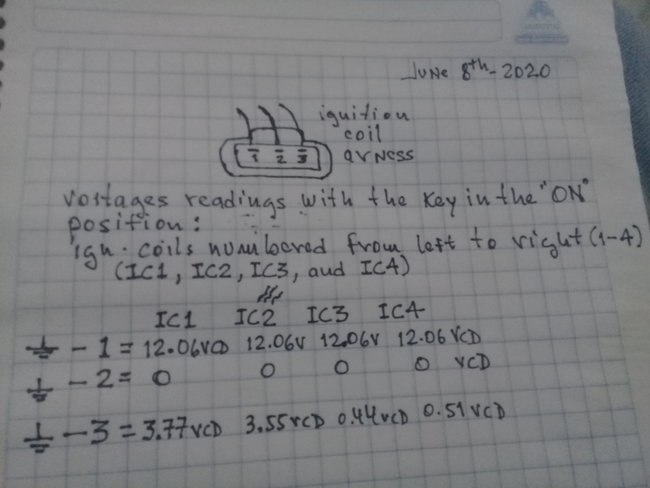 June 8th-2020
ignition
coil
arness
1 2 3
voltages readings with the key in the "ON"
position:
ign. coils numbered from left to right (1-4)
(IC1, IC2, IC3, and IC4)
IC1 IC2 IC3 IC4
- 1 = 12.06VCD 12.06V 12.06V 12.06 VCD
- 2 = 0 0 0 0 VCD
- 3 = 3.77VCD 3.55VCD 0.44VCD 0.51VCD